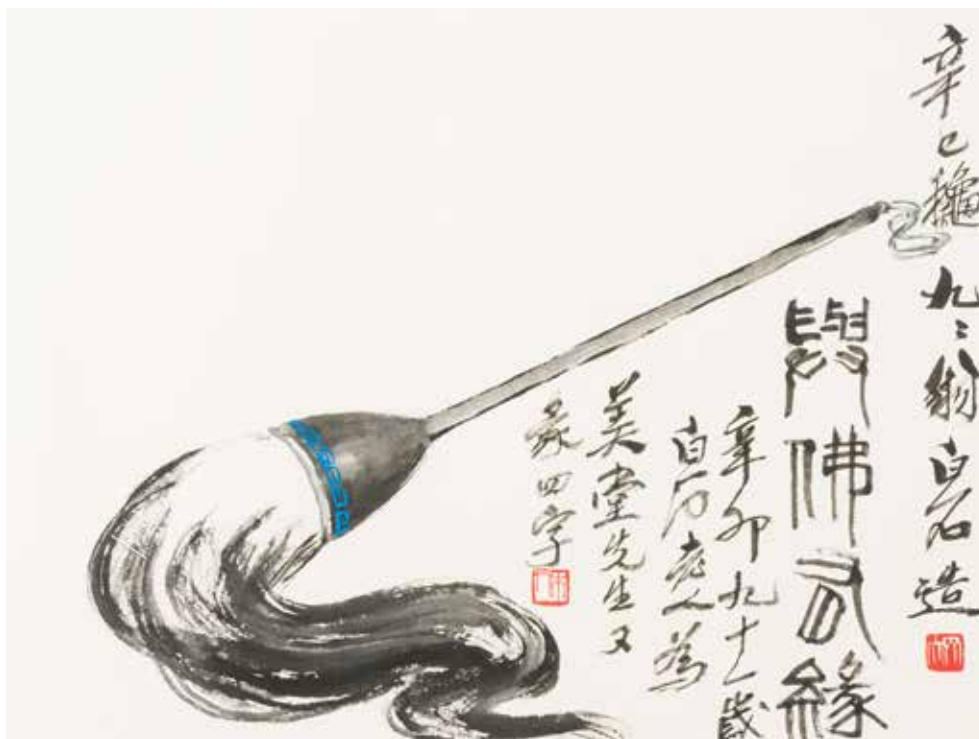 辛巳龝九二翁白石造
與佛有緣
辛卯九十一歲
白石老人為
美堂先生又
篆四字